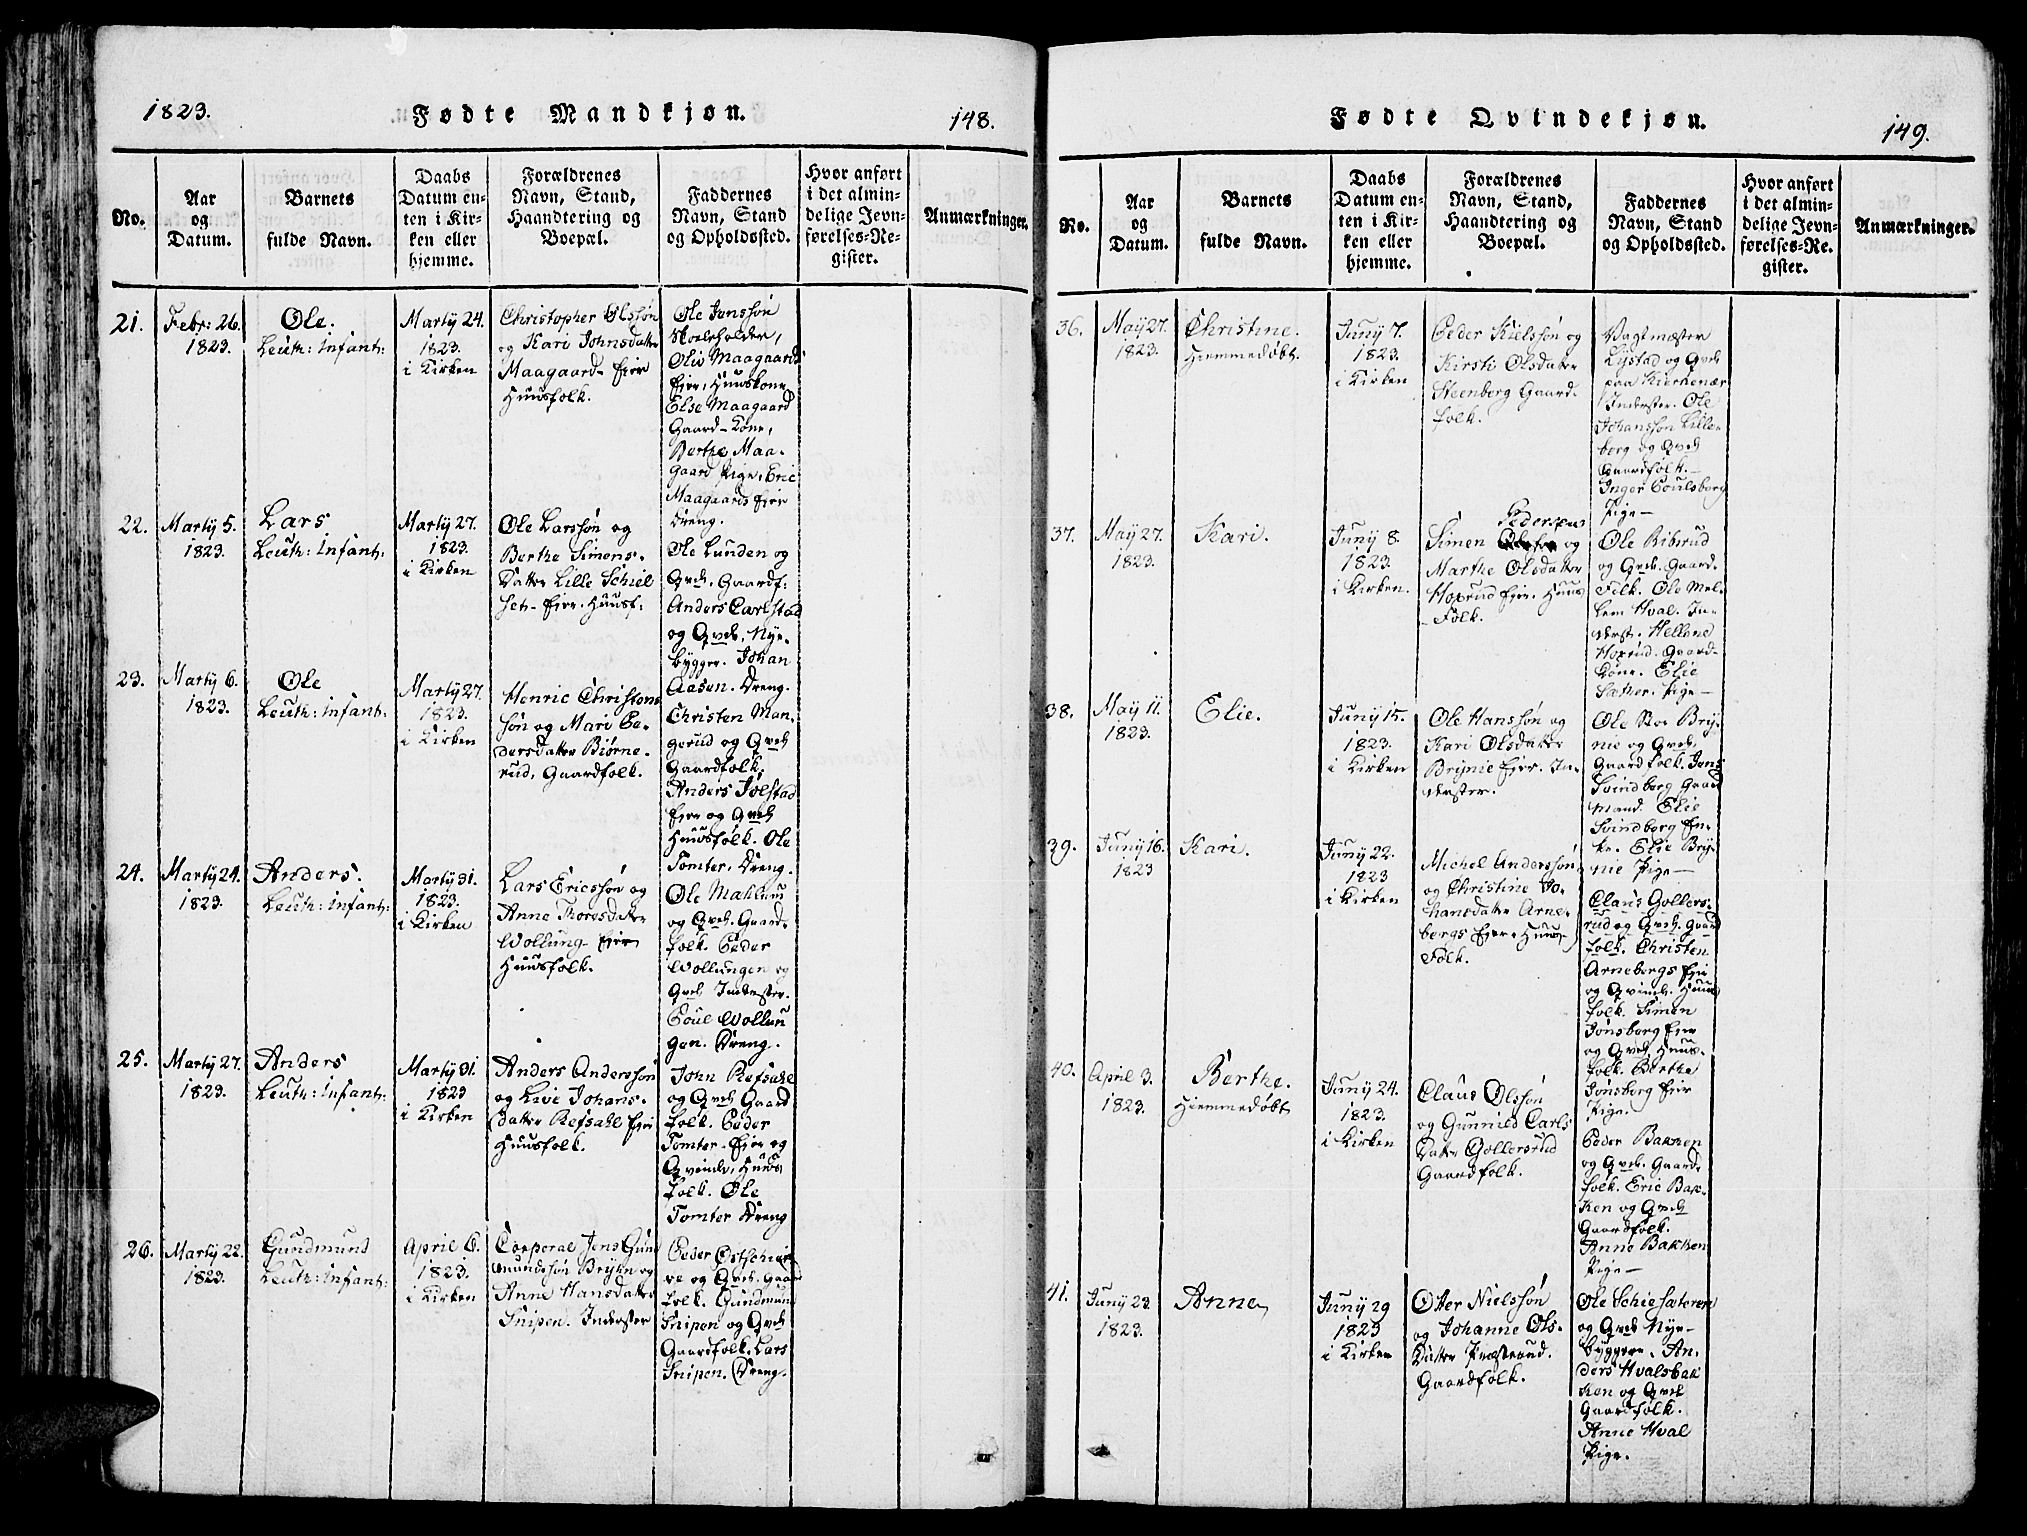 1823.
Fødte Mandkjøn.
148.
No.
Aar
og
Datum.
Barnets
fulde Navn.
Daabs
Datum en-
ten i Kir-
ken eller
hjemme.
Forældrenes
Navn, Stand,
Haandtering og
Boepæl.
Faddernes
Navn, Stand
og Opholdssted.
Hvor anført
i det almin-
delige Jevn-
førelses-Re-
gister.
Anmærkninger.
21.
Febr: 26.
1823.
Ole.
Leuth: Infant:
Martÿ 24.
1823.
i Kirken
Christopher Olssøn
og Kari Johnsdatter
Maagaard- Eier
Huusfolk.
Ole Jonssøn
Skoleholder,
Olie Maagaards
Eier, Huuskone
Else Maagaard
Gaard-Kone,
Berthe Maa-
gaard Pige, Eric
Maagaards Eier
Dreng.
22.
Martÿ 5.
1823.
Lars
Leuth: Infant:
Martÿ 27.
1823.
i Kirken
Ole Larssøn og
Berthe Simens-
Datter Lille Schiel
set- Eier. Huusf:
Ole Lunden og
Qvd. Gaardf:
Anders Carlstad
og Qvd, Nye-
bygger. Johan
Aasen. Dreng.
23.
Martÿ 6.
1823.
Ole
Leuth: Infant:
Martÿ 27.
1823.
i Kirken
Henric Christens
søn og Mari Pe-
dersdatter Biørne-
rud, Gaardfolk.
Christen Man-
gerud og Qvd
Gaardfolk,
Anders Jølstad
Eier og Qvd
Huusfolk. Ole
Tomter, Dreng.
24.
Martÿ 24.
1823.
Anders.
Leuth: Infant:
Martÿ 31.
1823.
i Kirken
Lars Ericssøn og
Anne Thoresdatter
Wollung- Eier
Huusfolk.
Ole Mahlum
og Qvd. Gaard-
folk. Peder
Wollungen og
Qvd Inderster.
Poul Wollun
gen. Dreng.
25.
Martÿ 27.
1823.
Anders
Leuth: Infant:
Martÿ 31.
1823
i Kirken
Anders Anderssøn
og Live Johans-
Datter Refsahl Eier
Huusfolk.
John Refsahl
og Qvd Gaard
folk. Peder
Tomter- Eier og
Qvinde, Huus
folk. Ole
Tomter Dreng
26.
Martÿ 22.
1823.
Gundmund
Leuth: Infant:
April 6.
1823.
i Kirken
Corporal Jens Gund
mundssøn Brÿhn og
Anne Hansdatter
Snipen. Inderster
Peder Østschier
re og Qvd. Gaard
folk. Gundmund
Snipen og Qvd
Gaardfolk. Lars
Snipen. Dreng.
Fødte Qvindekjøn.
149.
No.
Aar
og
Datum.
Barnets
fulde Navn.
Daabs
Datum en-
ten i Kir-
ken eller
hjemme.
Forældrenes
Navn, Stand,
Haandtering og
Boepæl.
Faddernes
Navn, Stand
og Opholdssted.
Hvor anført
i det almin-
delige Jevn-
førelses-Re-
gister.
Anmærkninger.
36.
Maÿ 27.
1823.
Christine.
Hiemmedøbt.
Junÿ 7.
1823.
i Kirken
Peder Kielssøn og
Kirsti Olsdatter
Steenborg Gaard-
folk.
Vagtmester
Lystad og Qvd
paa Kirkenær
Inderster. Ole
Johanssøn Lille-
berg og Qvd
Gaardfolk.-
Inger Poulsborg
Pige-
37.
Maÿ 27.
1823.
Kari.
Junÿ 8.
1823.
i Kirken.
Pedersen
Simen og
Marthe Olsdatter
Hoprud Eier. Huus
-Folk.
Ole Ribsrud
og Qvd. Gaard-
Folk. Ole Mel-
lem Hval. In-
derst. Hellene
Hoprud. Gaard-
Kone. Elie
Sæther. Pige-
38.
Maÿ 11.
1823.
Elie.
Junÿ 15.
1823.
i Kirken
Ole Hanssøn og
Kari Olsdatter
Brÿnie Eier. In-
derster.
Ole Sto. Brÿ-
nie og Qvd.
Gaardfolk. Jens
Svindberg Gaard
mand. Elie
Svindberg En-
ke. Elie Brÿ-
nie Pige-
39.
Junÿ 16.
1823
Kari.
Junÿ 22.
1823
i Kirken
Michel Anderssøn
og Christine Jo-
hansdatter Arne-
bergs Eier- Huus-
Folk.
Claus Gollers-
rud og Qvd. Gaard
folk. Christen
Arnebergs Eier
og Qvinde. Huus
folk. Simen
Jønsberg Eier
og Qvd. Huus-
folk. Berthe
Jønsberg Eier
Pige.
40.
April 3.
1823.
Berthe.
Hiemmedøbt
Junÿ 24.
1823.
i Kirken
Claus Olssøn
og Gunnild Carls
Datter Gollersrud
Gaardfolk.
Peder Bakken
og Qvd. Gaard-
folk. Eric Bak-
ken og Qvd
Gaardfolk.
Anne Bakken
Pige-
41.
Junÿ 23.
1823.
Anne
Junÿ 29
1823
i Kirken
Otter Nielssøn
og Johanne Ols-
Datter Præsterud.
Gaardfolk.
Ole Schiesæteren
og Qvd Nye-
byggere. An-
ders Hvalsbak
ken og Qvd
Gaardfolk.
Anne Hval
Pige.